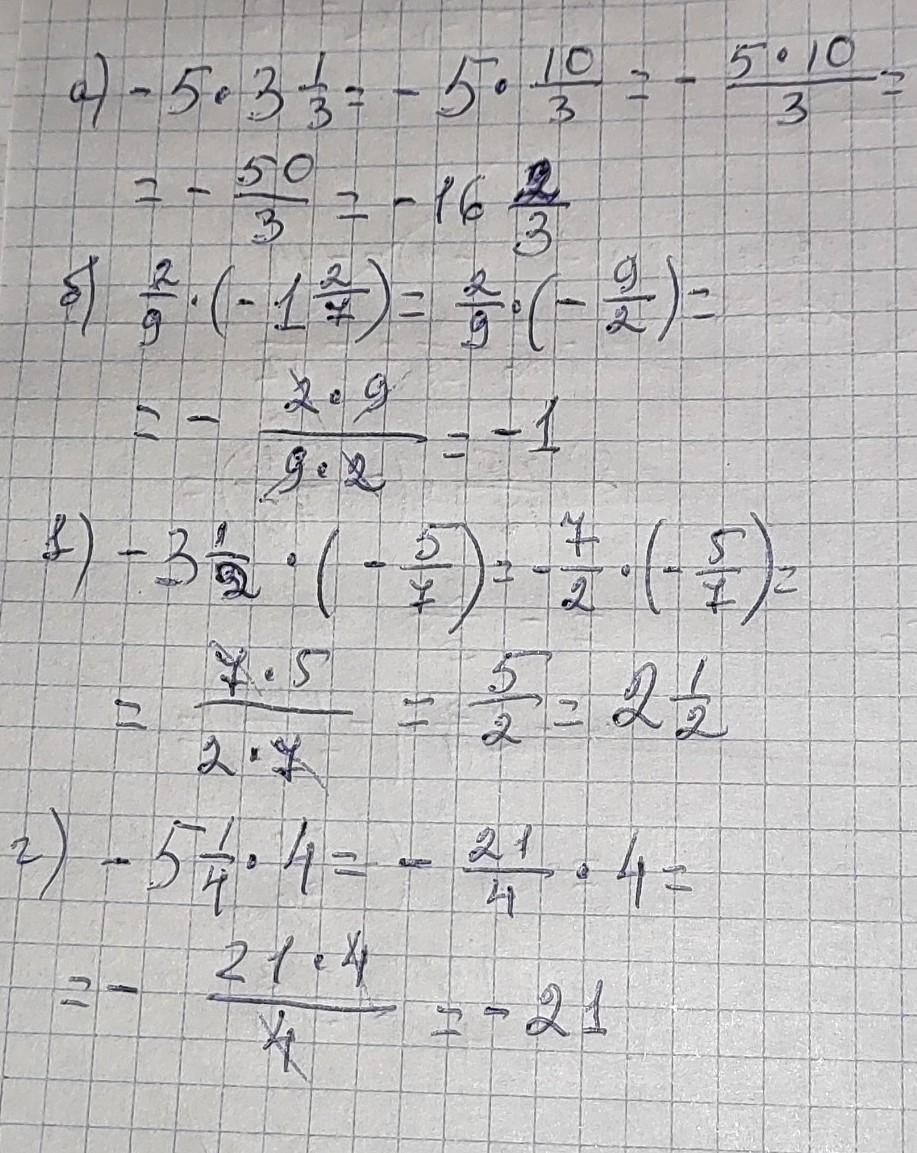 а) - 5 · 3 1/3 = - 5 · 10/3 = - 5 · 10/3 =
= - 50/3 = - 16 2/3
б) 2/9 · (- 1 2/7) = 2/9 · (- 9/2) =
= - 2 · 9/9 · 2 = - 1
в) - 3 1/2 · (- 5/7) = - 7/2 · (- 5/7) =
= 7 · 5/2 · 7 = 5/2 = 2 1/2
г) - 5 1/4 · 4 = - 21/4 · 4 =
= - 21 · 4/4 = - 21